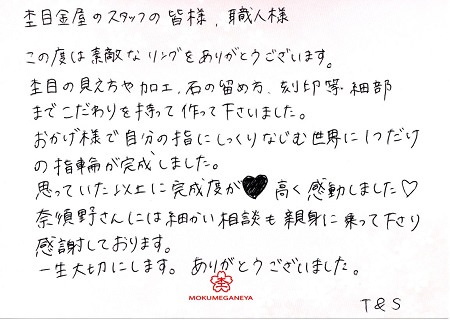 杢目金屋のスタッフの皆様、職人様
この度は素敵なリングをありがとうございます。
杢目の見え方や加工、石の留め方、刻印等細部
までこだわりを持って作って下さいました。
おかげ様で自分の指にしっくりなじむ世界に1つだけ
の指輪が完成しました。
思っていた以上に完成度が♥高く感動しました♡
奈須野さんには細かい相談も親身に乗って下さり
感謝しております。
一生大切にします。ありがとうございました。
MOKUMEGANEYA
T&S